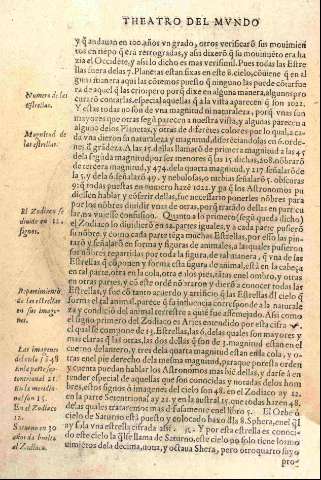 THEATRO DEL MVNDO
y q̃ andauan en 100. años vn grado, otros verificarõ sus mouimien
tos en tiẽpo q̃ era retrogradas, y assi dixerõ q̃ su mouimiẽto era ha
zia el Occidẽte, y assi lo dixo otras mas en vniuersal. Pues todas las Estre
llas fuera delas 7. Planetas estan fixas en este 8. cielo,
guna manera aqui las cõtemos puesto q̃ ninguno las puede cõtar fue
ra de aquel q̃ las crio: pero porq̃ dixe en alguna manera, algunos pro
curarõ contarlas, especial aquellas q̃ a la vista aparecen q̃ son 1022.
Y estas todas no son de vna magnitud ni naturaleza, porq̃ vnas son
mayores que otras segũ parecen a nuestra vista, y algunas parecen a
alguno delos Planetas, y otras de diferẽtes colores por lo qual, a ca-
da vna dieron su naturaleza y magnitud, diferenciãdolas en 6. orde-
nes
segũda magnitud, por ser menores q̃ las 15 dichas, 208. nõbrarõ
de tercera magnitud, y 474. dela quarta magnitud, y 217 señalarõ de
la 5. y dela 6. señalarõ 49. y nebulosas, o nieblas señalarõ 5. obscuras
9: q̃ todas puestas en numero hazẽ 1022. y pa q̃ los Astronomos pu
diessen hablar, y cõferir dellas, fue necessario ponerles nõbres para
por los nõbres diuidir vna de otras, porq̃ tratãdo dellas en particu
lar, no vuiesse confusion. Quanto a lo primero (segũ queda dicho)
el Zodiaco lo diuidierõ en 12. partes iguales, y a cada parte pusierõ
su nõbre, y como cada parte tẽga muchas Estrellas, por esso las pin-
tarõ y señalarõ en forma y figuras de animales, a las quales pusieron
sus nõbres repartidas por toda la figura, de tal manera, q̃ vna de las
Estrellas q̃ componen y forma esta figura de animal, estâ en la cabeça
en tal parte, otra en la cola, otra e los pies, otras enel ombro, y otras
en otras partes, y cõ este ordẽ notarõ y dierõ a conocer todas las
Estrellas, y fue cõ tanto acuerdo y artificio q̃ las Estrellas del cielo q̃
forma el tal animal, parece q̃ su influencia corresponde a la naturale
za y condiciõ del animal terrestre a quiẽ fue assemejado. Assi como
el signo primero del Zodiaco es Aries entendido por esta cifra ♈.
el qual se compone de 13. Estrellas, las 6. delas quales son mayores y
mas claras q̃ las otras, las dos dellas q̃ son de 3. magnitud estan en el
cuerno delantero, y tres dela quarta magnitud estan enla cola, y o-
tras enel pie derecho dela mesma magnitud, porque por esta orden
y cuenta puedan hablar los Astronomos mas biẽ dellas, y darse â en
tender especial de aquellas que son conocidas y notadas delos hom
bres, cuyos signos ò imagenes del cielo son 48. en el Zodiaco ay 12.
en la parte Setentrional ay 21. y en la austral 15. que todas hazen 48.
delas quales trataremos mas difusamente enel libro 5. El Orbe ò
cielo de Saturno està puesto y colocado baxo dela 8. Sphera, enel q̃l
ay sola vna estrella cifrada assi. ♄. Y por esta estrella es conoci-
do este cielo la q̃l se llama de Saturno, este cielo no solo tiene los mo
uimiẽtos dela decima, nona, y octaua Sphera, pero otro quarto suyo
pro-
Numero de las
estrellas.
Magnitud de
las estrellas.
El Zodiaco se
diuide en 12.
signos.
Repartimiento
de las estrellas
en sus image-
nes.
Las imagenes
del cielo son 48
En la parte sep-
tentrional 21.
En la meridio-
nal son 15.
En el Zodiaco
12.
Saturno en 30
años da buelta
al Zodiaco.